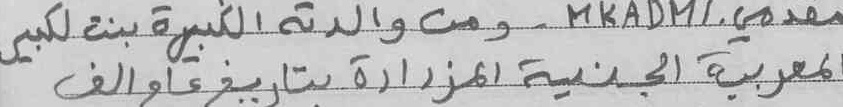 مقدمي. MKADMI - ومن والدته الكبيرة بنت لكبير
المغربية الجنسية المزدادة بتاريخ عام ألف